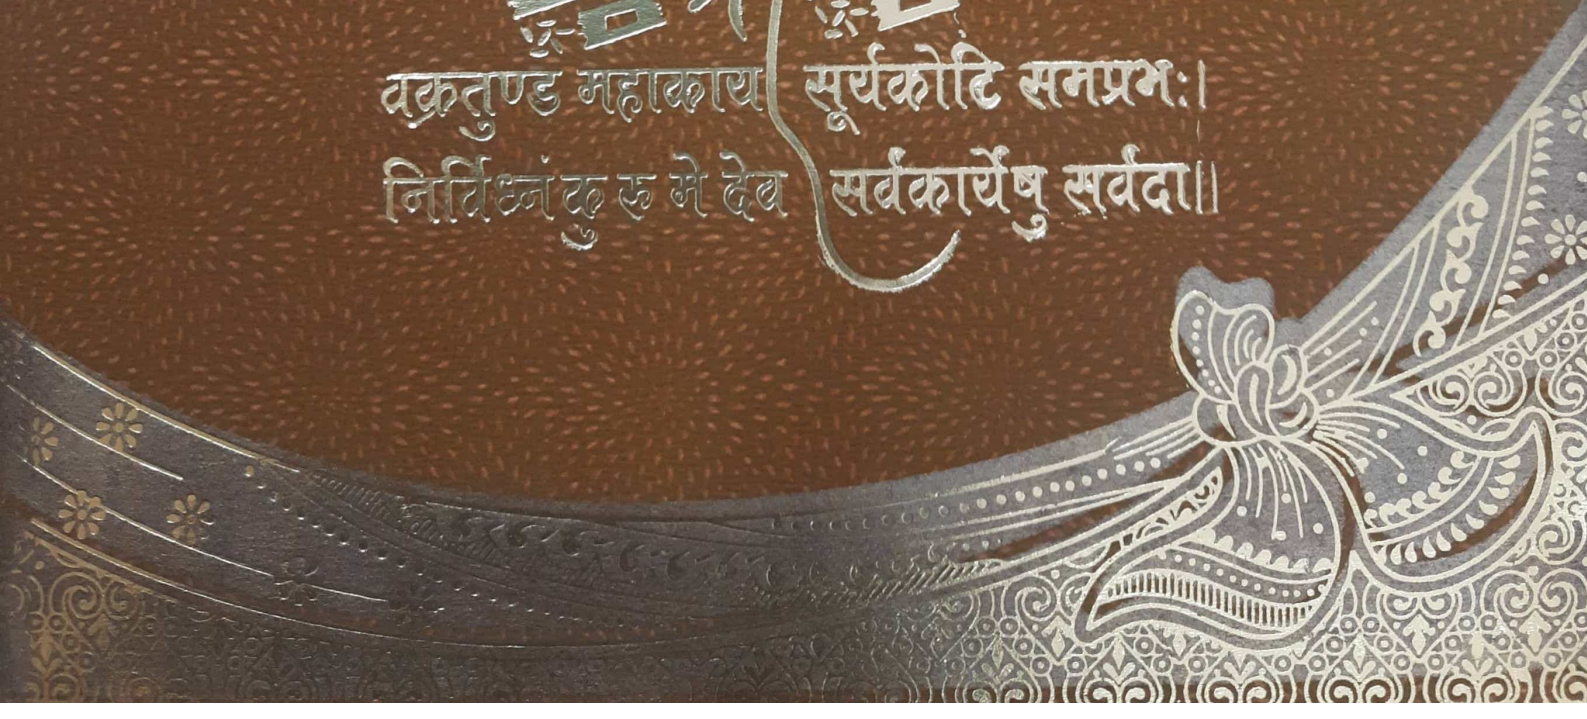 वक्रतुण्ड महाकाय सूर्यकोटि समप्रभः।
निर्विध्नं कुरु मे देव सर्वकार्येषु सर्वदा॥